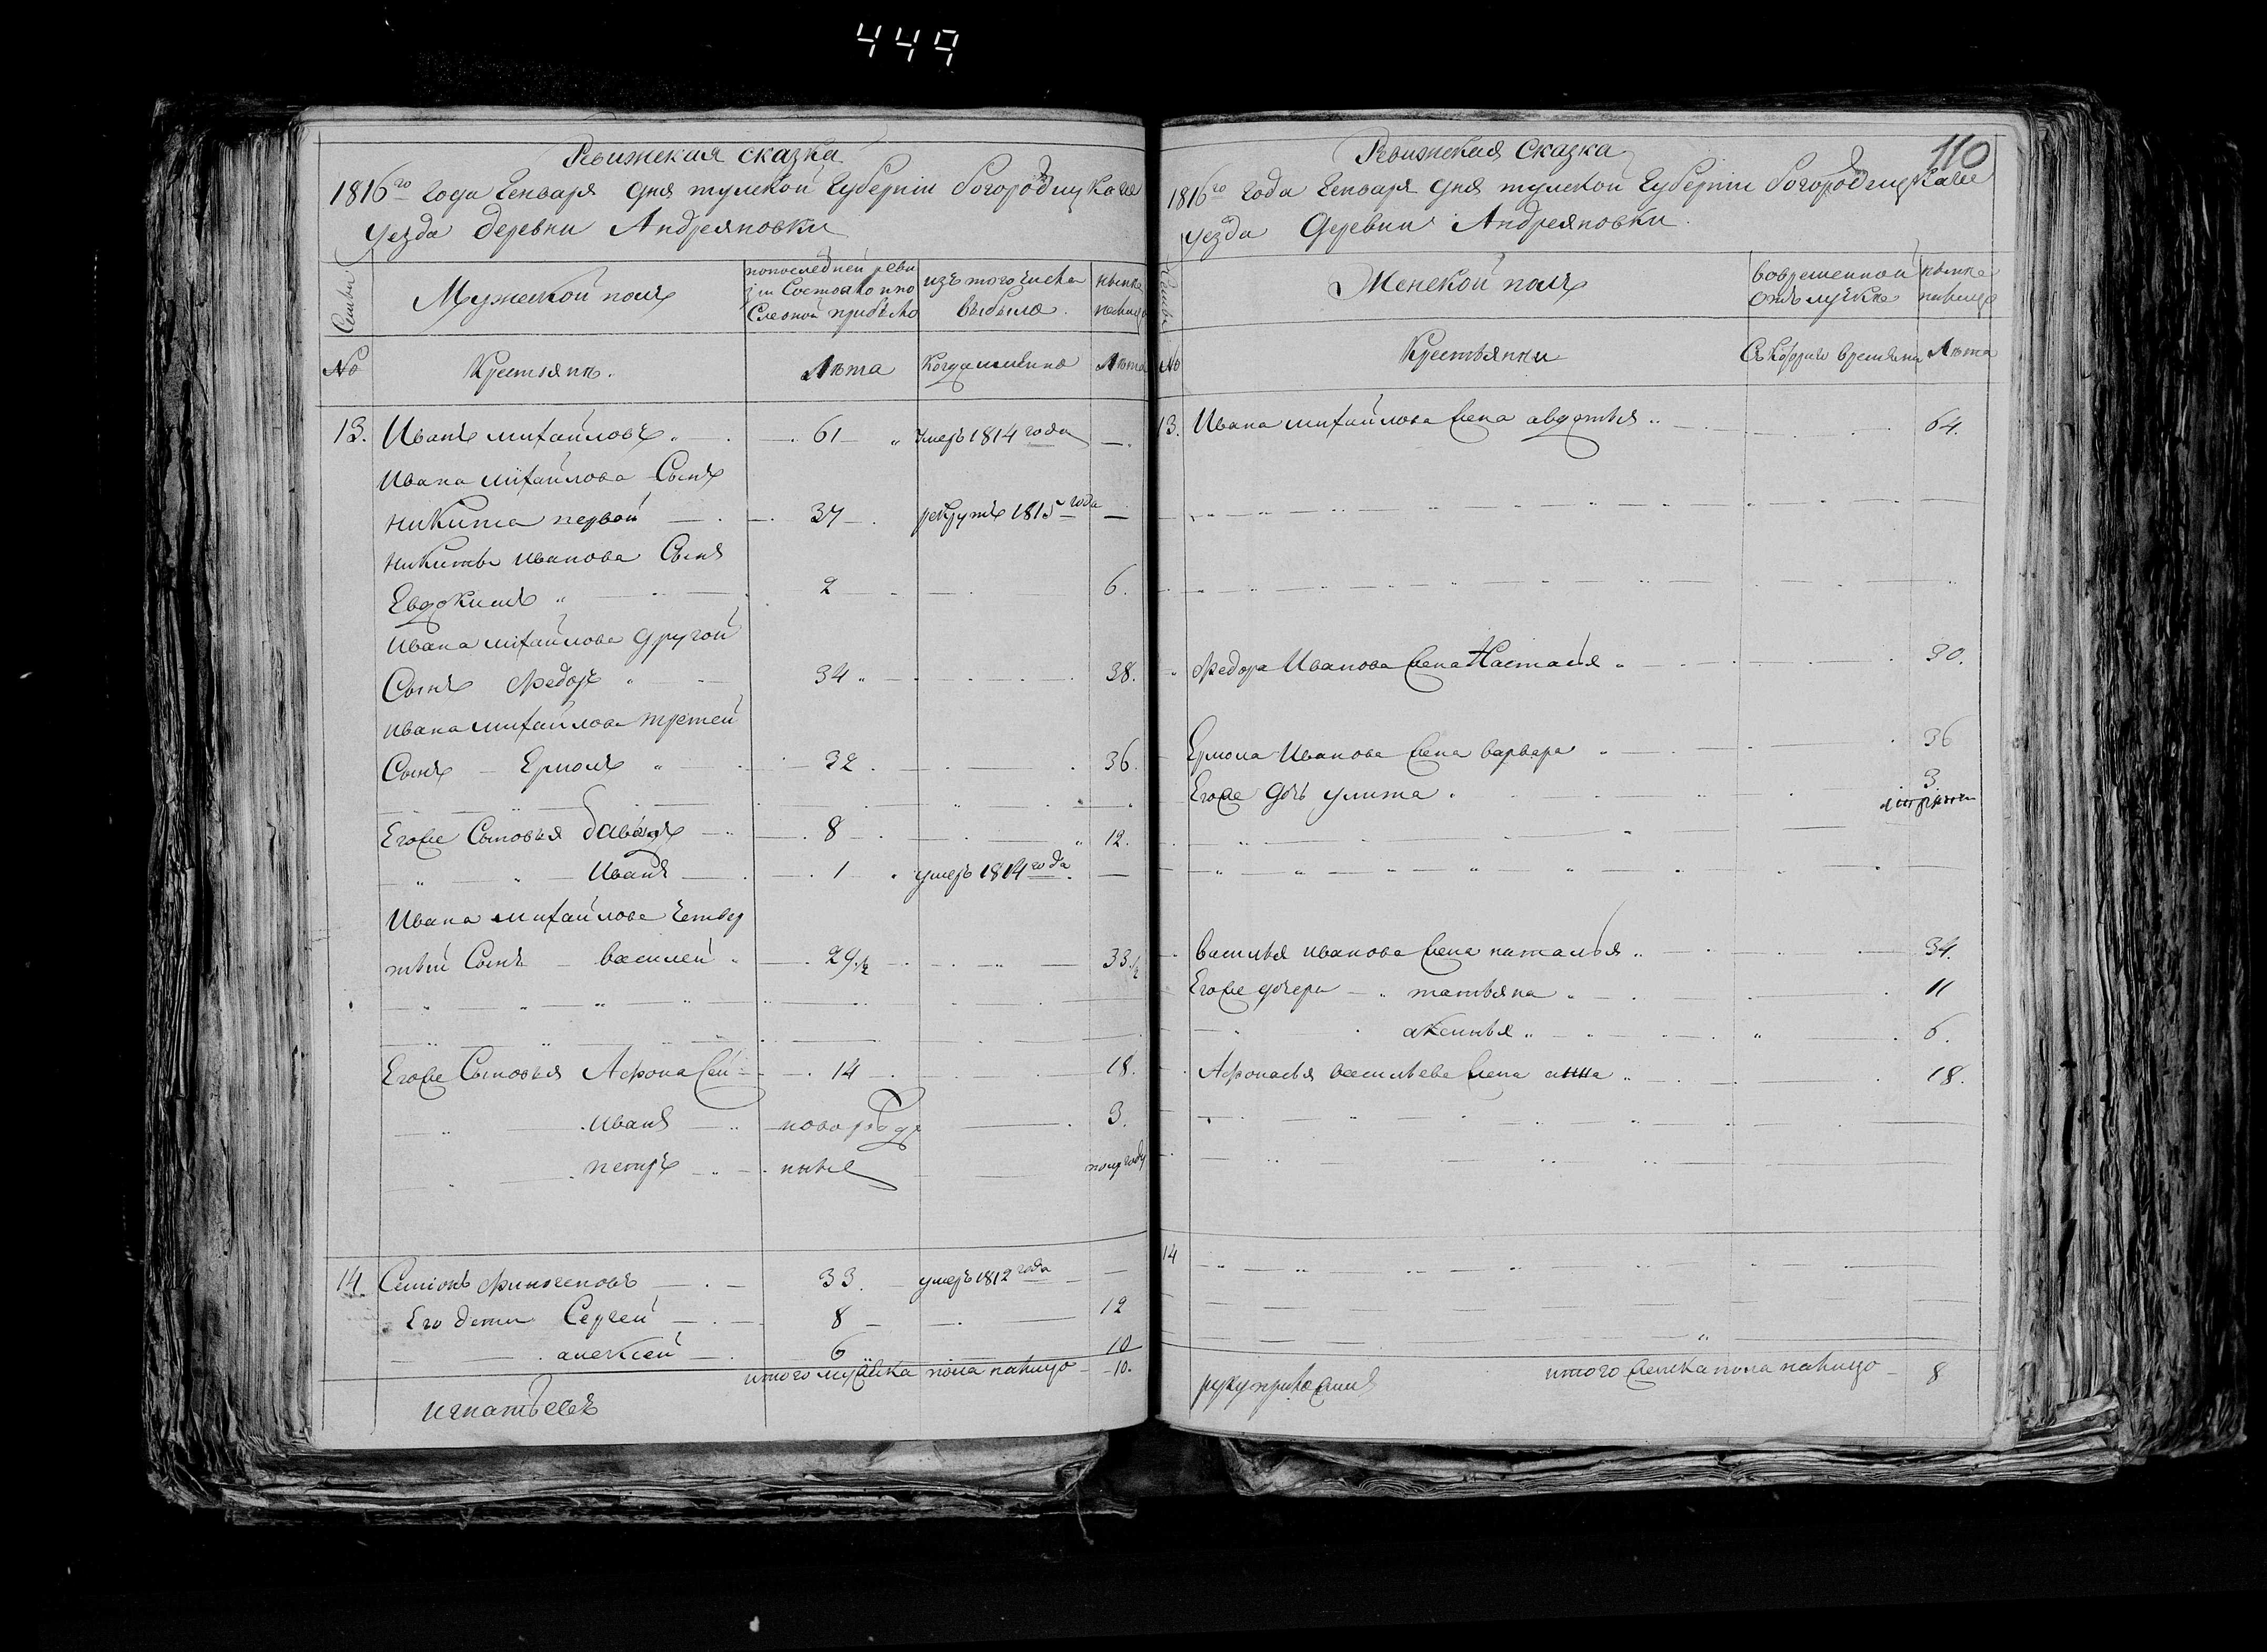 449
Ревижская сказка
1816го года Генваря дня тулской Губернии Богородицкаго
уезда деревни Андреяновки
Семьи
Мужеской полъ
попоследней реви
зіи Состояло ипо
Слеоной прибыло
изъ того числа
выбыло
нынѣ
налицо
№
Крестьянъ.
Лѣта
Когда имянно
Лѣта
13. Иванъ михайловъ 61 умеръ 1814 года
Ивана михайлова Сынъ
никита первой 37 рекрутъ 1815 года
никиты иванова Сынъ
Евдокимъ 2 6.
Ивана михайлова другой
Сынъ Федоръ 34 38.
Ивана михайлова третей
Сынъ Ермолъ 32 36.
Егоже Сыновья давыдъ 8 12.
Иванъ 1 умеръ 1814 года
Ивана михайлова четвер
тый Сынъ василей 29 ½ 33 ½
Егоже Сыновья Афонасей 14 18.
иванъ новорожде 3.
петръ нные полугоду
14. Семіонъ Финогеновъ 33. умеръ 1812 года
Его дети Сергей 8 12
алексей 6 10
итого мужска пола налицо 10.
игнатьевъ
110
Ревижская Сказка
1816го года Генваря дня тулской Губернии Богородицкаго
уезда Деревни Андреяновки.
Семьи
Женской полъ
вовременной
отлучке
нынѣ
налицо
№
Крестьянки
Съкотораго времяни
Лѣта
13. Ивана михайлова жена авдотья 64.
Федора Иванова жена Настасья 30.
Ермола Иванова жена варвара 36
Егоже дочь улита 3
василья иванова жена наталья 34.
Егоже дочери татьяна 11
аксинья 6.
Афонасья васильева жена анна 18.
14
итого женска пола налицо 8
руку приложилъ